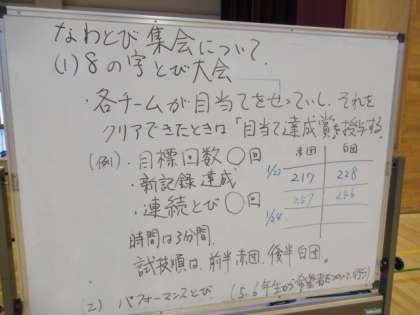 なわとび集会について
(1) 8の字とび大会
・各チームが目当てをせっていし、それを
クリアできたときは「目当て達成賞」を授与する。
(例)・目標回数 ◯回
・新記録達成
・連続とび ◯回
赤団 白団
1/23 217 228
257 256
1/24
時間は3分間
試技順は、前半赤団、後半白団。
(2) パフォーマンスとび